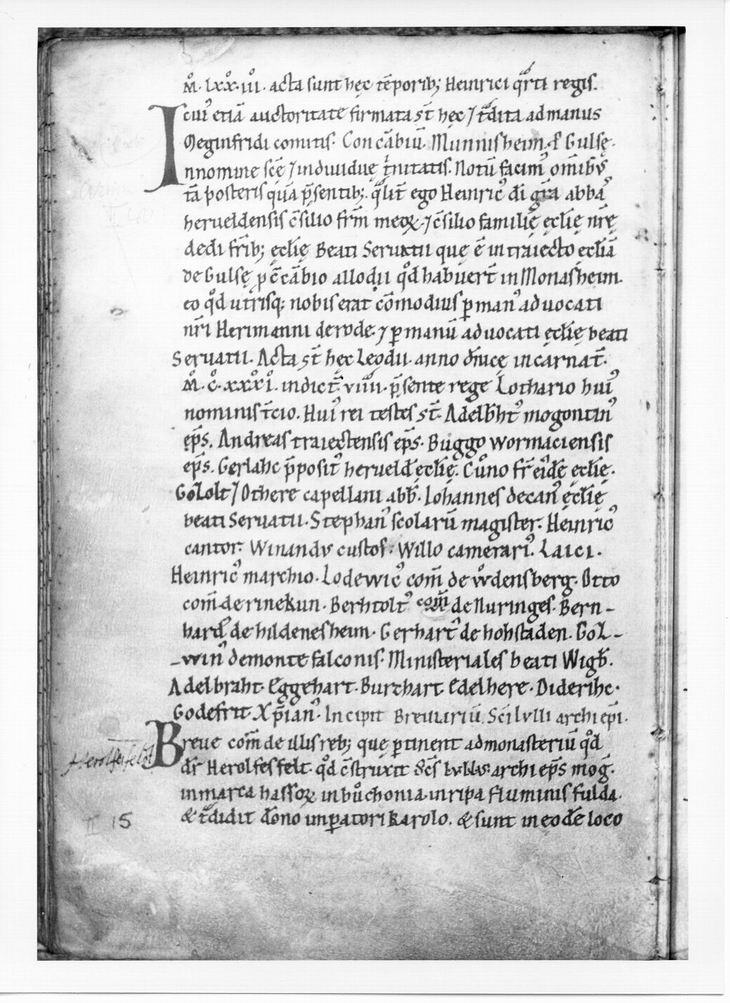 M̊. lxx̊. iii̊. acta sunt hęc tēporib; Heinrici qͬrti regis.
cui᾽ etiā auctoritate firmata s̄t hec ⁊ t͛dita ad manus
Meginfridi comitis. Concābiū Munnisheim. & Gulse.
Innomine scē ⁊ indiuiduę t̍nitatis. Notū facim᾽ omīb᾽
tā posteris quā p̄sentib;. qͣlit̄ ego Heinric᾽ di gr̄a abbā
herueldensis c̄silio frm̄ meoꝝ. ⁊ c̄silio familię ęclię nrę
dedi fr̄ib; ęclię Beati Seruatii que ē in traiecto ecl̄iā
de Gulsę p c̄cābio allodii qd̄ habuer̄t in Monasheim.
eo qd̄ utrisq; nobis erat cōmodius ꝑ man᾽ aduocati
nr̄i Herimanni de rode. ⁊ ꝑ manū aduocati ęclię beati
Seruatii. Acta s̄t hec Leodii. anno dn̄ice incarnat̄.
M̊. C̊. xxxi̊. indict̄. viiii. p̄sente rege Lothario hui᾽
nominis t̄cio. Hui᾽ rei testes s̄t. Adelbht᾽ mogontin᾽
ep̄s. Andreas traiectensis ep̄s. Buggo wormaciensis
ep̄s. Gerlahc p̄posit᾽ herueld̄ ęclię. Cūno fr̄ eidē eclię.
Gololt ⁊ Othere capellani abb̄. Iohannes decan᾽ ęclię
beati Seruatii. Stephan᾽ scolarū magister. Heinric᾽
cantor. Winandv custos. Willo camerari᾽. Laici.
Heinric᾽ marchio. Lodewic᾽ com̄ de wͦdensberg. Otto
com̄ de rinekun. Berhtolt᾽ com̄ de Nuringes. Bern-
hard᾽ de hildenesheim. Gerhart᾽ de hohstaden. Gol-
-win᾽ demonte falconis. Ministeriales beati Wigb̄.
Adelbraht. Eggehart. Burchart. Edelhere. Diderihc.
Godefrit. Xp̄ian᾽. Incipit Breuiariū. Sc̄i lvlli archi ep̄i.
Breue com̄de illis reb; que ꝑtinent ad monasteriū qd̄
Herolfesfeldt
dr̄ Herolfesfelt. qd̄ c̄struxit sc̄s lvllvs archi ep̄s moḡ.
in marca hassoꝝ in bůchonia. in ripa fluminis fulda.
& t͛didit dōno imꝑatori karolo. & sunt in eodē loco
II 15